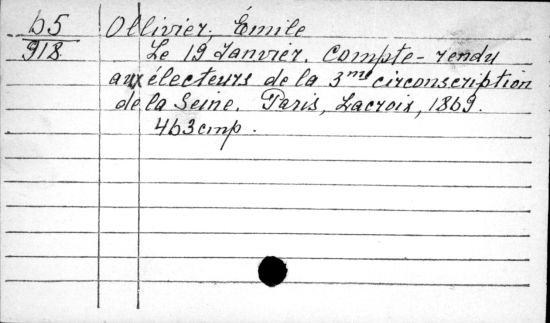 b5 Ollivier, Émile
918 Le 19 Janvier. Compte-rendu
aux électeurs de la 3me circonscription
de la Seine. Paris, Lacroix, 1869.
463 стр.